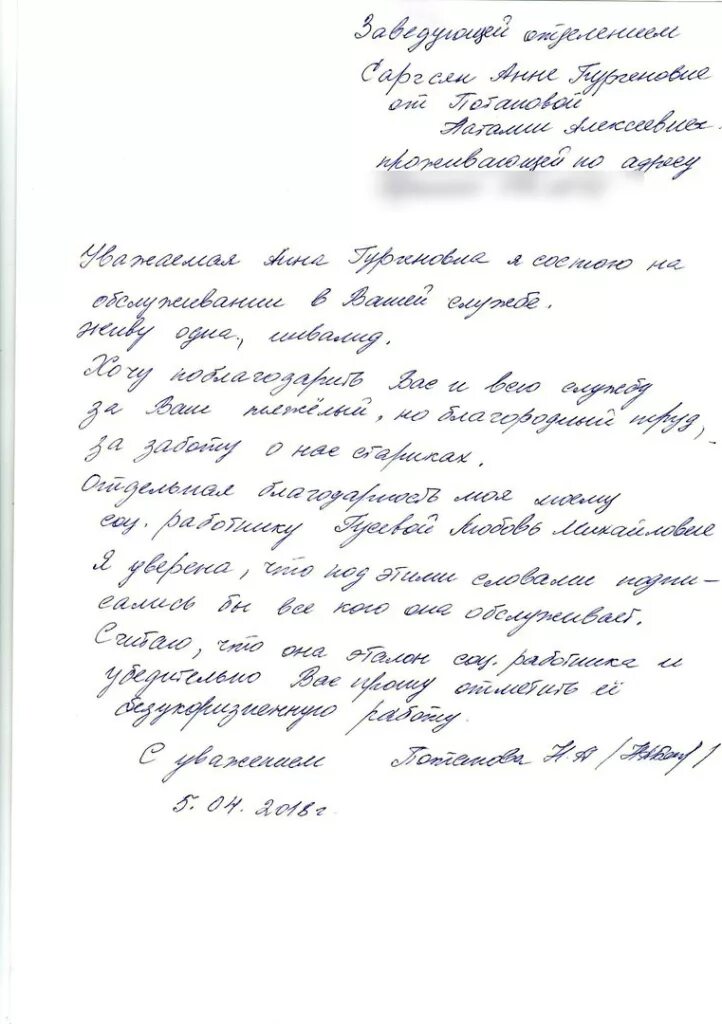 Заведующей отделением
Саргсян Анне Гургеновне
от Потаповой
Наталии Алексеевны.
проживающей по адресу
Уважаемая Анна Гургеновна я состою на
обслуживании в Вашей службе.
Живу одна, инвалид.
Хочу поблагодарить Вас и всю службу
за Ваш тяжёлый, но благородный труд,
за заботу о нас стариках.
Отдельная благодарность моя моему
соц. работнику Гусевой Любовь Михайловне
Я уверена, что под этими словами подпи-
сались бы все кого она обслуживает.
Считаю, что она эталон соц. работника и
убедительно Вас прошу отметить её
безукоризненную работу.
С уважением Потапова Н.А
5.04.2018г.